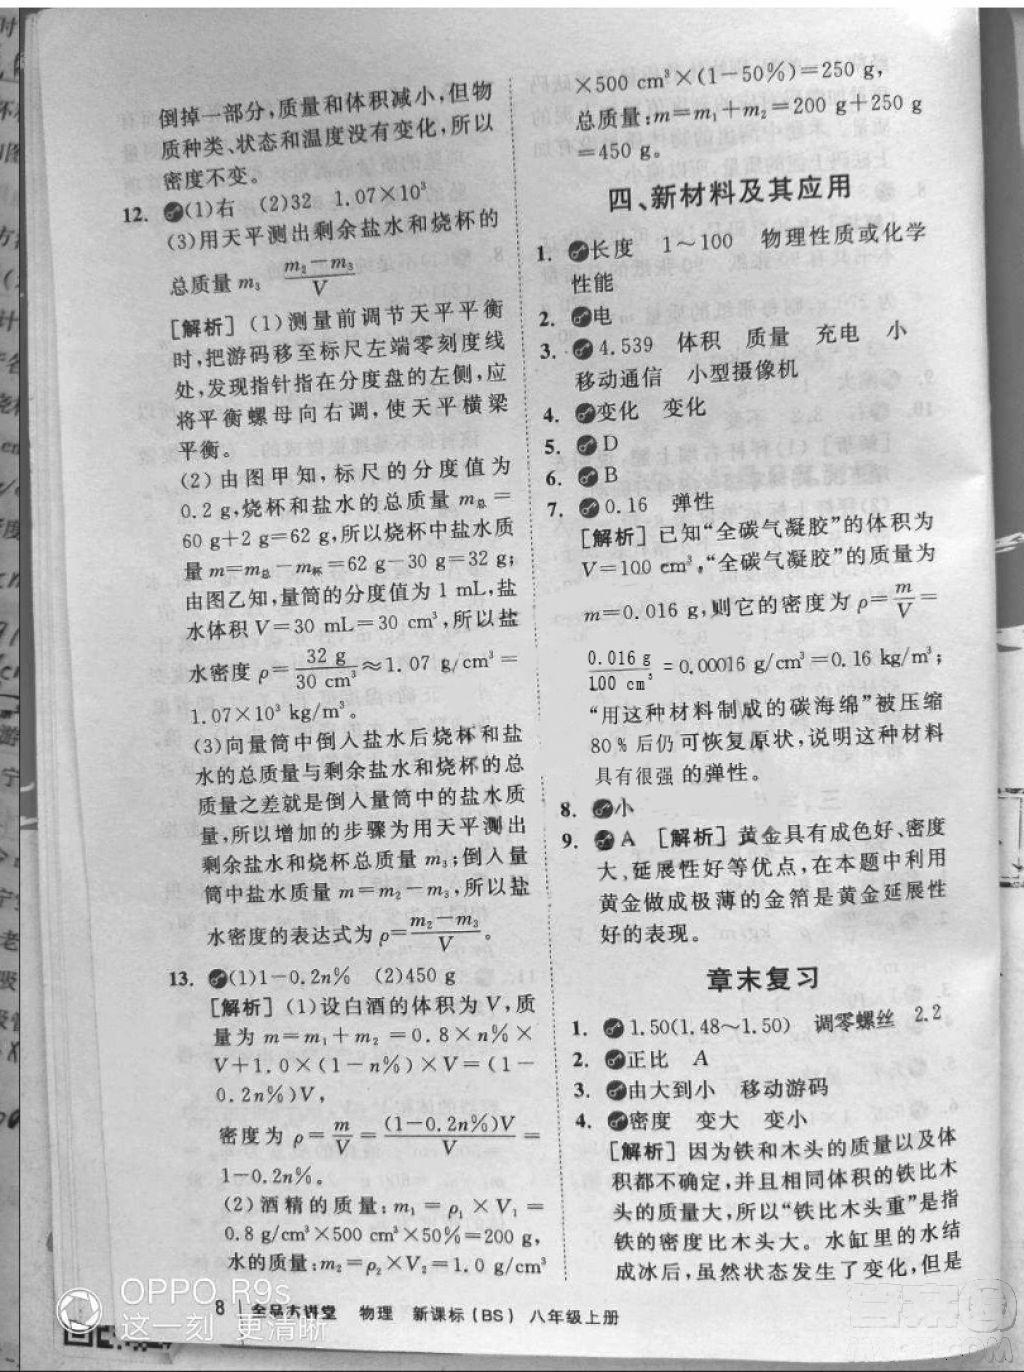 倒掉一部分,质量和体积减小,但物
质种类、状态和温度没有变化,所以
密度不变。
12. (1)右 (2)32 1.07×10³
(3)用天平测出剩余盐水和烧杯的
总质量 m₃ (m₂－m₃)/V
[解析] (1)测量前调节天平平衡
时,把游码移至标尺左端零刻度线
处,发现指针指在分度盘的左侧,应
将平衡螺母向右调,使天平横梁
平衡。
(2)由图甲知,标尺的分度值为
0.2 g,烧杯和盐水的总质量 m总=
60 g+2 g=62 g,所以烧杯中盐水质
量 m=m总－m杯=62 g－30 g=32 g;
由图乙知,量筒的分度值为 1 mL,盐
水体积 V=30 mL=30 cm³,所以盐
水密度 ρ=32 g/30 cm³≈1.07 g/cm³=
1.07×10³ kg/m³。
(3)向量筒中倒入盐水后烧杯和盐
水的总质量与剩余盐水和烧杯的总
质量之差就是倒入量筒中的盐水质
量,所以增加的步骤为用天平测出
剩余盐水和烧杯总质量 m₃;倒入量
筒中盐水质量 m=m₂－m₃,所以盐
水密度的表达式为 ρ=(m₂－m₃)/V。
13. (1)1－0.2n% (2)450 g
[解析] (1)设白酒的体积为 V,质
量为 m=m₁+m₂=0.8×n%×
V+1.0×(1－n%)×V=(1－
0.2n%)V,
密度为 ρ=m/V=(1－0.2n%)V/V=
1－0.2n%。
(2)酒精的质量:m₁=ρ₁×V₁=
0.8 g/cm³×500 cm³×50%=200 g,
水的质量:m₂=ρ₂×V₂=1.0 g/cm³
×500 cm³×(1－50%)=250 g,
总质量:m=m₁+m₂=200 g+250 g
=450 g。
四、新材料及其应用
1. 长度 1～100 物理性质或化学
性能
2. 电
3. 4.539 体积 质量 充电 小
移动通信 小型摄像机
4. 变化 变化
5. D
6. B
7. 0.16 弹性
[解析] 已知“全碳气凝胶”的体积为
V=100 cm³,“全碳气凝胶”的质量为
m=0.016 g,则它的密度为 ρ=m/V=
0.016 g/100 cm³=0.00016 g/cm³=0.16 kg/m³;
“用这种材料制成的碳海绵”被压缩
80%后仍可恢复原状,说明这种材料
具有很强的弹性。
8. 小
9. A [解析] 黄金具有成色好、密度
大、延展性好等优点,在本题中利用
黄金做成极薄的金箔是黄金延展性
好的表现。
章末复习
1. 1.50(1.48～1.50) 调零螺丝 2.2
2. 正比 A
3. 由大到小 移动游码
4. 密度 变大 变小
[解析] 因为铁和木头的质量以及体
积都不确定,并且相同体积的铁比木
头的质量大,所以“铁比木头重”是指
铁的密度比木头大。水缸里的水结
成冰后,虽然状态发生了变化,但是
8 全品大讲堂 物理 新课标(BS) 八年级上册
OPPO R9s
这一刻 更清晰